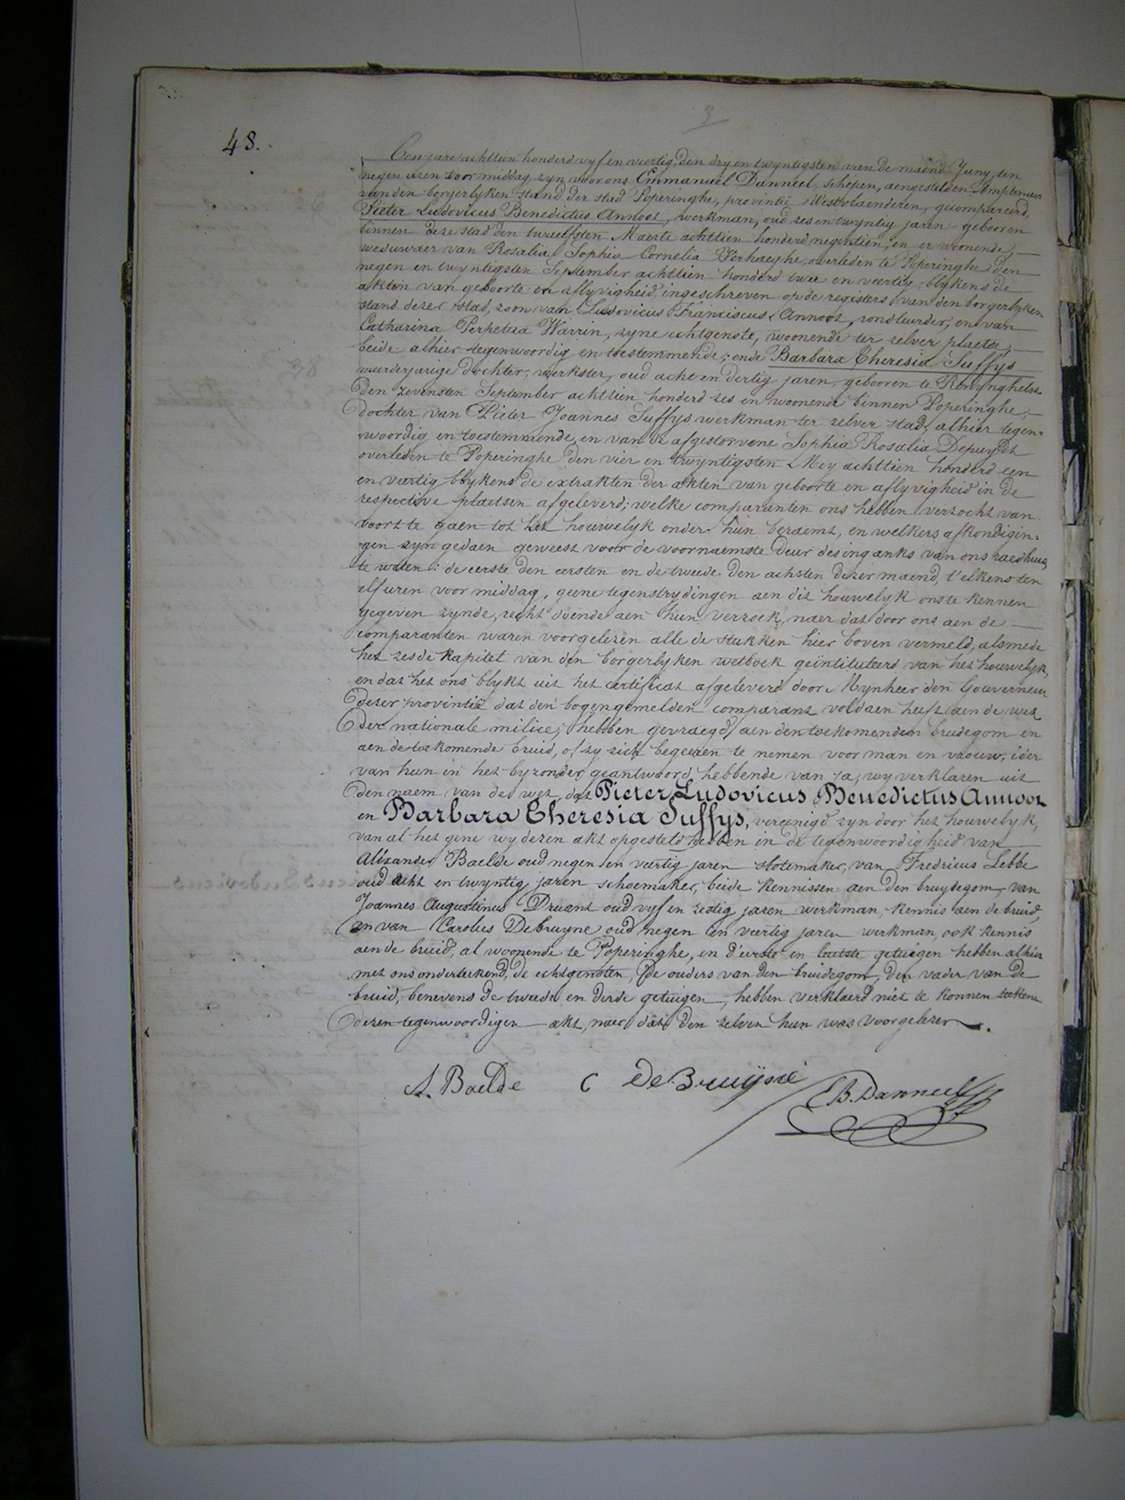 3
48.
Een jare achttien honderd vyf en viertig, den dry en twyntigsten van de maend Juny, ten
negen uren voor middag, zyn voor ons Emmanuel Danneel, schepen, aengestelden Amptenaer
van den borgerlyken stand der stad Poperinghe, provintie Westvlaenderen, gecompareerd
Pieter Ludovicus Benedictus Annoot, werkman, oud zes en twyntig jaren geboren
binnen deze stad den twaelfsten Maerte achttien honderd negentien, en er woonende,
weduwaer van Rosalia Sophia Cornelia Verhaeghe, overleden te Poperinghe den
negen en twyntigsten September achttien honderd twee en veertig, blykens de
akten van geboorte en aflyvigheid ingeschreven op de registers van den borgerlyken
stand dezer stad, zoon van Ludovicus Franciscus Annoot, rondleurder, en van
Catharina Perpetua Warrin, zyne echtgenote, woonende ter zelver plaetse,
beide alhier tegenwoordig en toestemmende; ende Barbara Theresia Suffys
meerderjarige dochter, werkster, oud acht en dertig jaren, geboren te Reninghelst
den zevensten September achttien honderd zes en woonende binnen Poperinghe,
dochter van Pieter Joannes Suffys werkman ter zelver stad, alhier tegen-
woordig en toestemmende, en van de afgestorvene Sophia Rosalia Depuydt
overleden te Poperinghe den vier en twyntigsten Mey achttien honderd een
en veertig blykens de extrakten der akten van geboorte en aflyvigheid in de
respective plaetsen afgeleverd; welke comparanten ons hebben verzocht van
voort te gaen tot het houwelyk onder hun beraemt, en welkers afkondigin-
gen zyn gedaen geweest voor de voornaemste deur des ingangs van ons raedhuis
te weten: de eerste den eersten en de tweede den achsten dezer maend, t'elkens ten
elf uren voor middag, geene tegenstrydingen aen dit houwelyk ons te kennen
gegeven zynde, recht doende aen hun verzoek, naer dat door ons aen de
comparanten waren voorgelezen alle de stukken hier boven vermeld, alsmede
het zesde kapitel van den borgerlyken wetboek geïntituleerd van het houwelyk,
en dat het ons blykt uit het certificat afgeleverd door Mynheer den Gouverneur
dezer provintie dat den bogengemelden comparant voldaen heeft aen de wet
der nationale milicie, hebben gevraegd aen den toekomenden brudegom en
aen de toekomende bruid, of zy zich begeeren te nemen voor man en vrouw, ider
van hun in het byzonder geantwoord hebbende van ja, wy verklaren uit
den naem van de wet, dat Pieter Ludovicus Benedictus Annoot
en Barbara Theresia Suffys, vereenigd zyn door het houwelyk,
van al het gene wy dezen akt opgesteld hebben in de tegenwoordigheid van
Alixander Baelde oud negen en veertig jaren slotemaker, van Fredricus Lebbe
oud acht en twyntig jaren schoemaker, beide kennissen aen den bruydegom, van
Joannes Augustinus Druant oud vyf en zestig jaren werkman, kennis aen de bruid,
en van Carolus Debruyne oud negen en veertig jaren werkman, ook kennis
aen de bruid, al woonende te Poperinghe, en d'eerste en leatste getuigen hebben alhier
met ons onderteekend, de echtgenoten, de ouders van den bruidegom, den vader van de
bruid, benevens de tweede en derde getuigen, hebben verklaerd niet te konnen teekenen
dezen tegenwoordigen akt, naer dat den zelven hun was voorgelezen.
A. Baelde C de Bruijne E B. Danneel